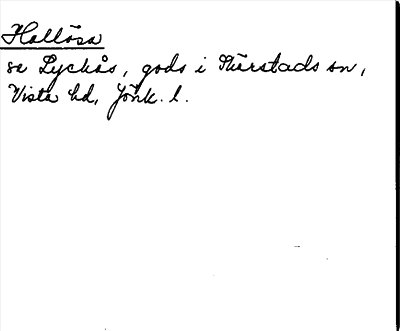 Hallösa
se Lyckås, gods i Skärstads sn,
Vista hd, Jönk. l.